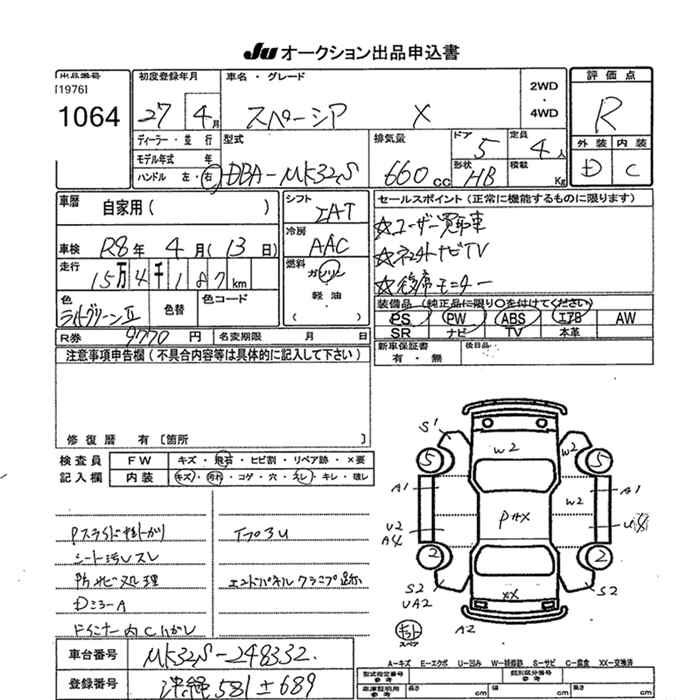 JU オークション出品申込書
出品番号
[1976]
1064
初度登録年月
27 4月
車名・グレード
スペーシア X
2WD
・
4WD
評価点
R
外装 内装
D C
ディーラー・並行
モデル年式 年
ハンドル 左・右
型式
DBA-MK32S
排気量
660 cc
ドア
5
定員
4人
形状
HB
積載
Kg
車歴
自家用( )
車検 R8年 4月(13日)
走行
15万4千187km
色
ライトグリーンⅡ
色替
色コード
シフト
IAT
冷房
AAC
燃料
ガソリン
・
軽油
・
( )
セールスポイント(正常に機能するものに限ります)
☆ユーザー買取車
☆ネットナビTV
☆後席モニター
装備品(純正品に限り○を付けてください)
PS PW ABS エアB AW
SR ナビ TV 本革
R券 9770円
名変期限 月 日
新車保証書
有・無
後日品
注意事項申告欄(不具合内容等は具体的に記入して下さい)
修復歴 有〔箇所 〕
検査員
記入欄
FW キズ・飛石・ヒビ割・リペア跡・×要
内装 キズ・汚れ・コゲ・穴・スレ・キレ・破レ
Pスライド掛かり
シート汚レスレ
内ナビ処理
Dミラー A
ドインナー内Cハガレ
エンドパネルクランプ跡
S1
W2
5 5
A1 W2 A1
U2 PAX U4
A4
2 2
S2 S2
UA2
XX
A2
キット
スペア
車台番号 MK32S-248332.
登録番号 沖縄 581 土 689
A-キズ E-エクボ U-凹み W-補修跡 S-サビ C-腐食 XX-交換済
型式指定番号
参考
類別区分番号
参考
車庫証明用
参考
長さ cm
幅 cm
高さ cm